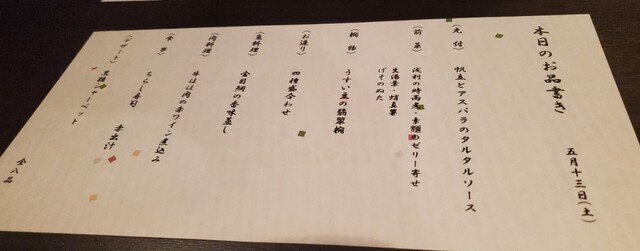 本日のお品書き
五月十三日(土)
(先付) 帆立とアスパラのタルタルソース
(前菜) 浅利の時雨煮・素麺のゼリー寄せ
生湯葉・蛸真薯
げそのぬた
(椀物) うすい豆の翡翠椀
(お造り) 四種盛合わせ
(魚料理) 金目鯛の香味蒸し
(肉料理) 牛ほほ肉の赤ワイン煮込み
(食事) ちらし寿司 赤出汁
(デザート) 黒糖シャーベット
全八品